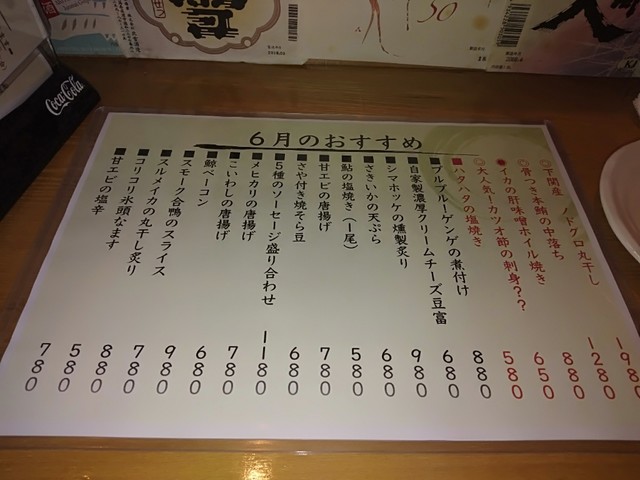 6月のおすすめ
◎下関産 ノドグロ丸干し 1980
◎骨つき本鮪の中落ち 1280
●イカの肝味噌ホイル焼き 880
◎大人気！カツオ節の刺身？？ 650
■ハタハタの塩焼き 580
■ブルブルーゲンゲの煮付け 880
■自家製濃厚クリームチーズ豆富 680
■シマホッケの燻製炙り 980
■さきいかの天ぷら 680
■鮎の塩焼き（1尾） 580
■甘エビの唐揚げ 780
■さや付き焼そら豆 680
■5種のソーセージ盛り合わせ 1180
■メヒカリの唐揚げ 780
■こいわしの唐揚げ 680
■鯨ベーコン 980
■スモーク合鴨のスライス 780
■スルメイカの丸干し炙り 880
■コリコリ氷頭なます 580
■甘エビの塩辛 780
Coca-Cola
50